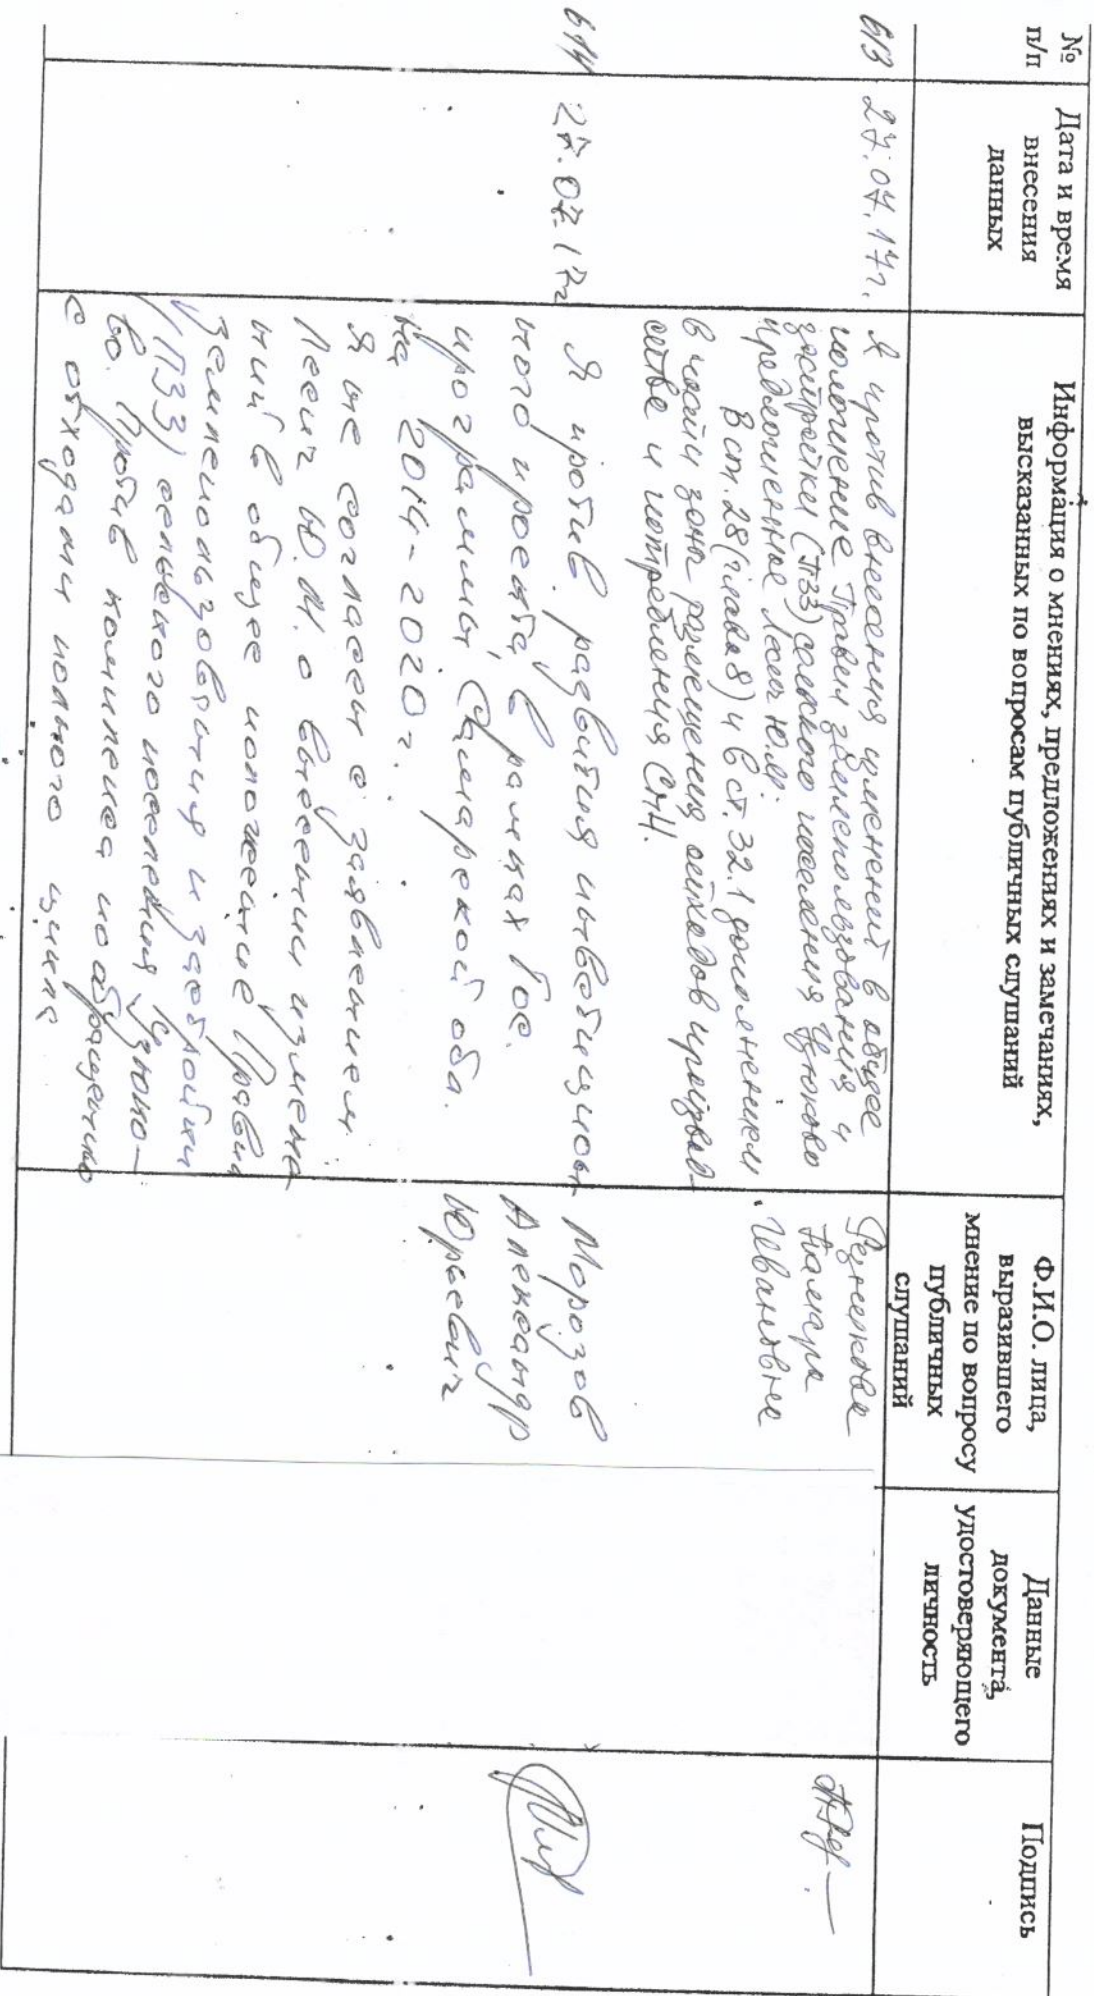 №
п/п
Дата и время
внесения
данных
Информация о мнениях, предложениях и замечаниях,
высказанных по вопросам публичных слушаний
Ф.И.О. лица,
выразившего
мнение по вопросу
публичных
слушаний
Данные
документа,
удостоверяющего
личность
Подпись
613
27.07.17г.
Я против внесения изменений в общее
положение Правил землепользования и
застройки (ПЗЗ) сельского поселения Узюково
предложенные Лесеч Ю.М.
В ст. 28 (глава 8) и в ст. 32.1 дополнением
в части зоны размещения отходов производ-
ства и потребления СН4.
Тамара
Ивановна
614
27.07.17г
Я против развития инвестицион-
ного проекта, в рамках гос.
программы Самарской обл.
на 2014-2020г.
Я не согласен с заявлением
Лесеч Ю.М. о внесении измене
ний в общее положение Правил
землепользования и застройки
(ПЗЗ) сельского поселения Узюко-
во. Против комплекса по обращению
с отходами полного цикла
Морозов
Александр
Юрьевич